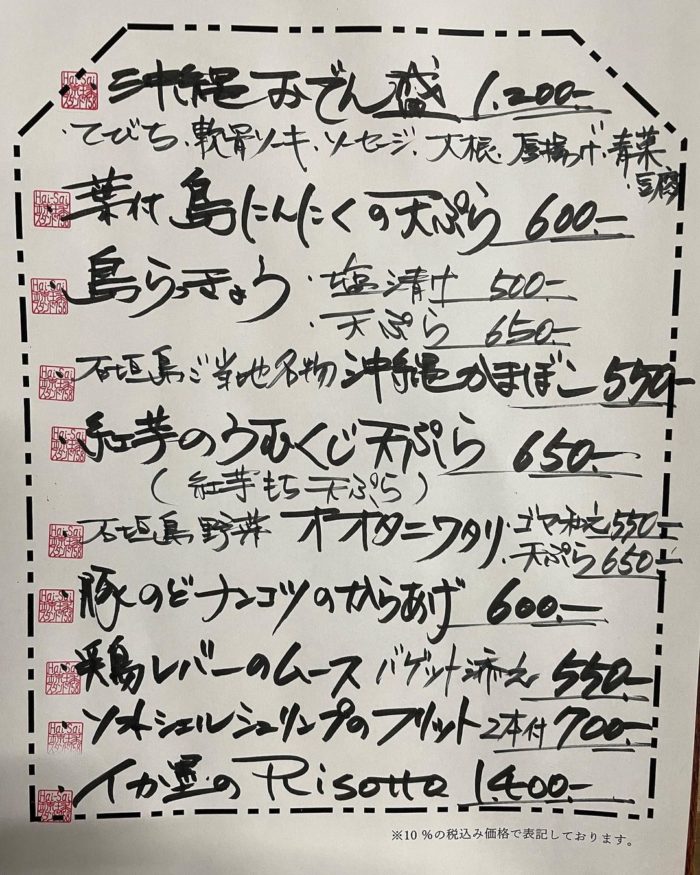 沖縄おでん盛 1,200-
・てびち、軟骨ソーキ、ソーセージ、大根、厚揚げ、青菜
・豆腐
葉付島にんにくの天ぷら 600-
島らっきょう ・塩漬け 500-
・天ぷら 650-
石垣島ご当地名物 沖縄かまぼこ 550-
紅芋のうむくじ天ぷら 650-
(紅芋もち天ぷら)
石垣島野菜 オオタニワタリ ・ゴマ和え 550-
・天ぷら 650-
豚のどナンコツのからあげ 600-
鶏レバーのムース バゲット添え 550-
ソフトシェルシュリンプのフリット 2本付 700-
イカ墨の Risotto 1,400-
※10 %の税込み価格で表記しております。